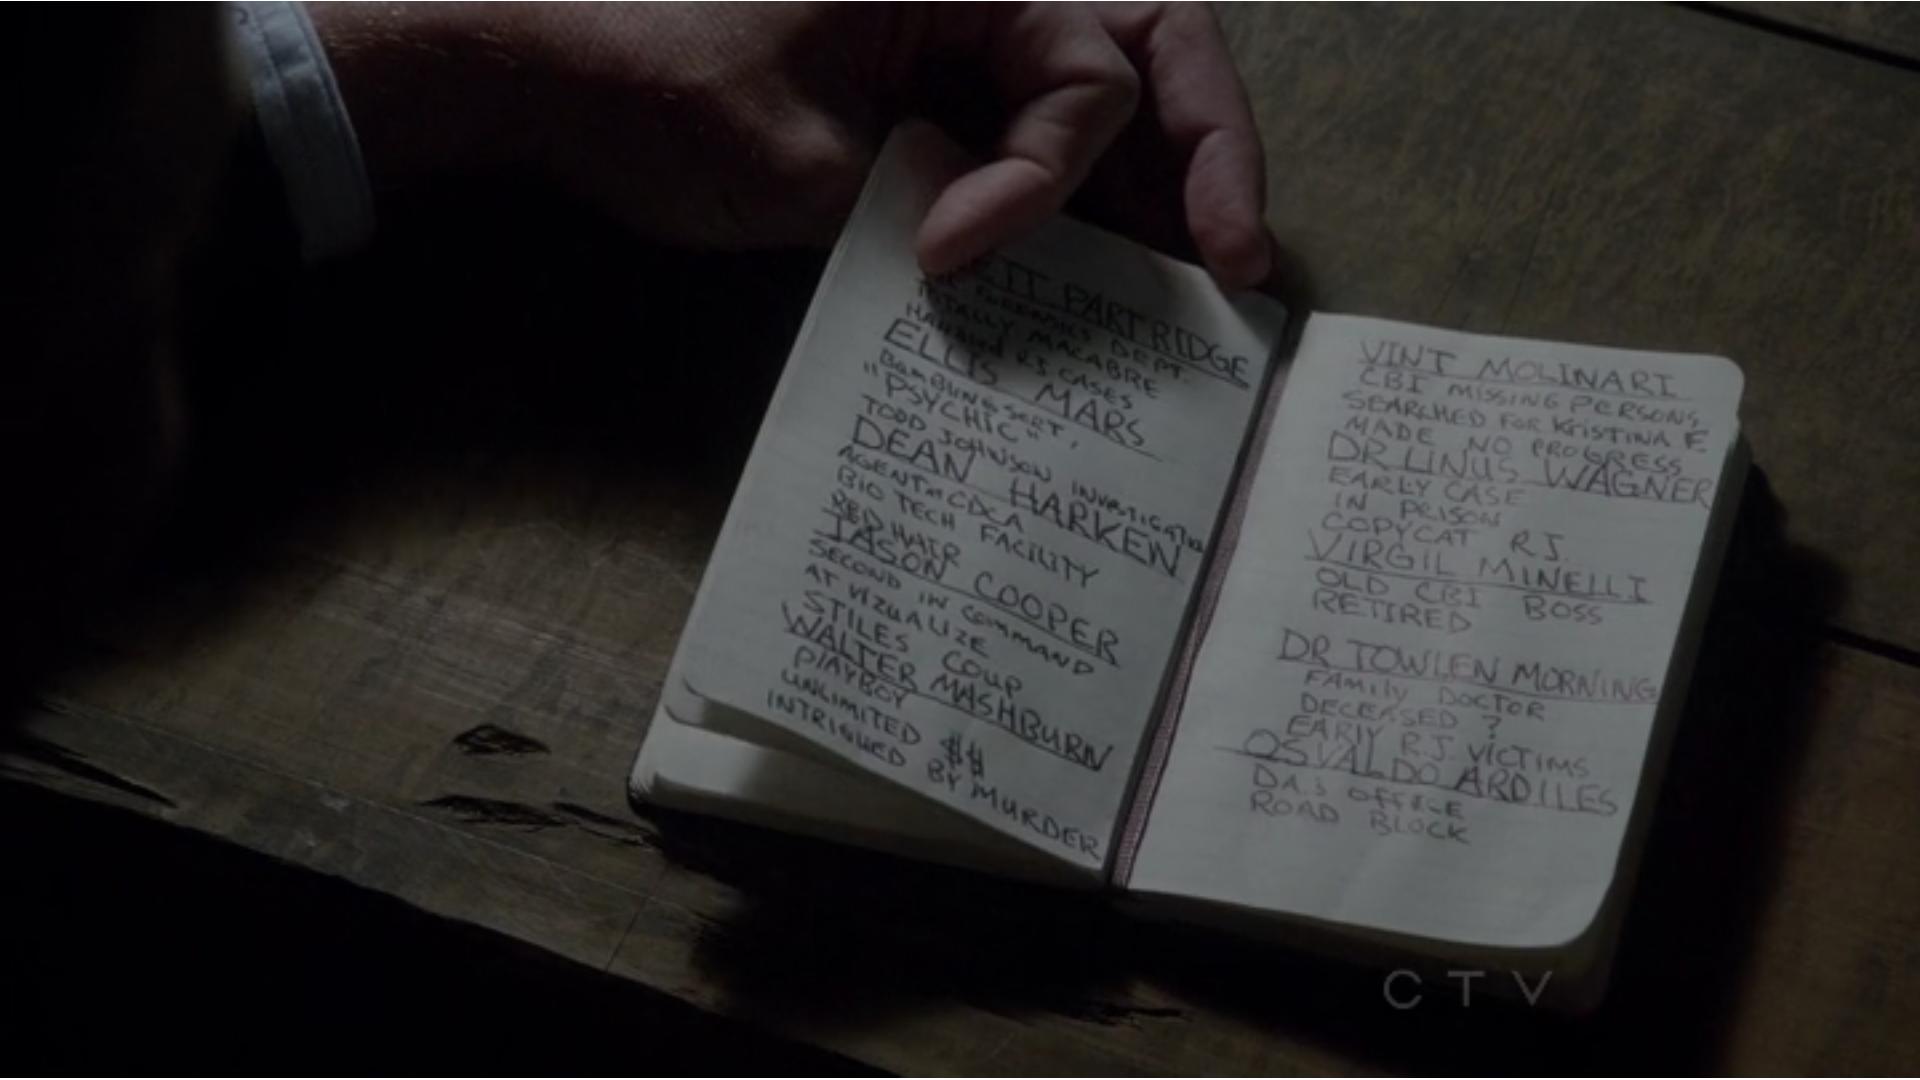 ETT PARTRIDGE
FORENSICS DEPT.
TOTALLY MACABRE
HANDLED RJ CASES
ELLIS MARS
"PSYCHIC"
TODD JOHNSON INVESTIGATION
DEAN HARKEN
AGENT AT CDCA
BIO TECH FACILITY
RED HAIR
JASON COOPER
SECOND IN COMMAND
AT VIZUALIZE
STILES COUP
WALTER MASHBURN
PLAYBOY
UNLIMITED $$
INTRIGUED BY MURDER
VINT MOLINARI
CBI MISSING PERSONS,
SEARCHED FOR KRISTINA F.
MADE NO PROGRESS
DR LINUS WAGNER
EARLY CASE
IN PRISON
COPYCAT RJ.
VIRGIL MINELLI
OLD CBI BOSS
RETIRED
DR TOWLEN MORNING
FAMILY DOCTOR
DECEASED ?
EARLY R.J. VICTIMS
OSVALDO ARDILES
D.A.'S OFFICE
ROAD BLOCK
CTV